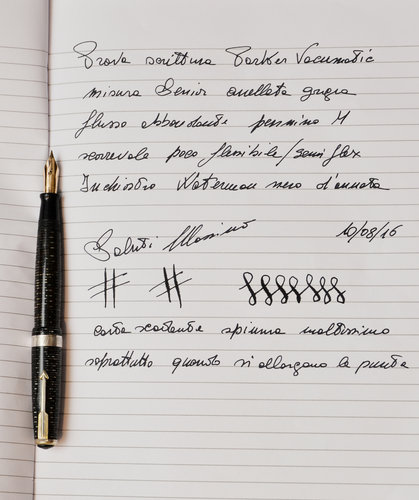 Prova scrittura Parker Vacumatic
misura Senior anellata grigia
flusso abbondante pennino M
scorrevole poco flessibile/semiflex
Inchiostro Waterman nero d'annata
Saluti Massimo 10/08/16
carta scadente spiuma moltissimo
soprattutto quando si allargano le punte